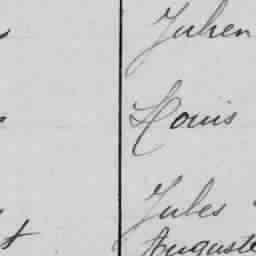 Julien
Louis
Jules
Auguste